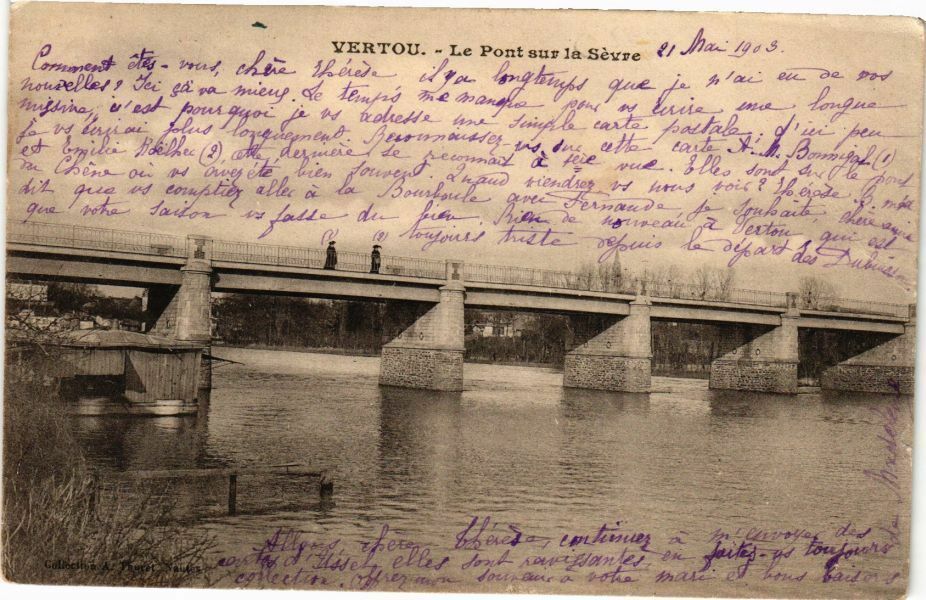 VERTOU. - Le Pont sur la Sèvre
21 Mai 1903.
Comment êtes-vous, chère Thérèse il y a longtemps que je n'ai eu de vos
nouvelles? Ici ça va mieux. Le temps me manque pour vs écrire une longue
missive, c'est pourquoi je vs adresse une simple carte postale; d'ici peu
je vs écrirai plus longuement. Reconnaissez-vs sur cette carte A. M. (1)
et Emilie (2), cette dernière se reconnait à 1ère vue. Elles sont sur le pont
du Chêne où vs avez été bien souvent. Quand viendrez vs nous voir? Thérèse
dit que vs comptiez aller à la Bourboule avec Fernande je souhaite chère amie
que votre saison vs fasse du bien. Rien de nouveau à Vertou qui est
toujours triste depuis le départ des
(1) (2)
Allons chère Thérèse, continuez à m'envoyer des
cartes elles sont ravissantes, en faites-vs toujours
collection. Offrez mon souvenir à votre mari et bons baisers
Collection A. Nantes